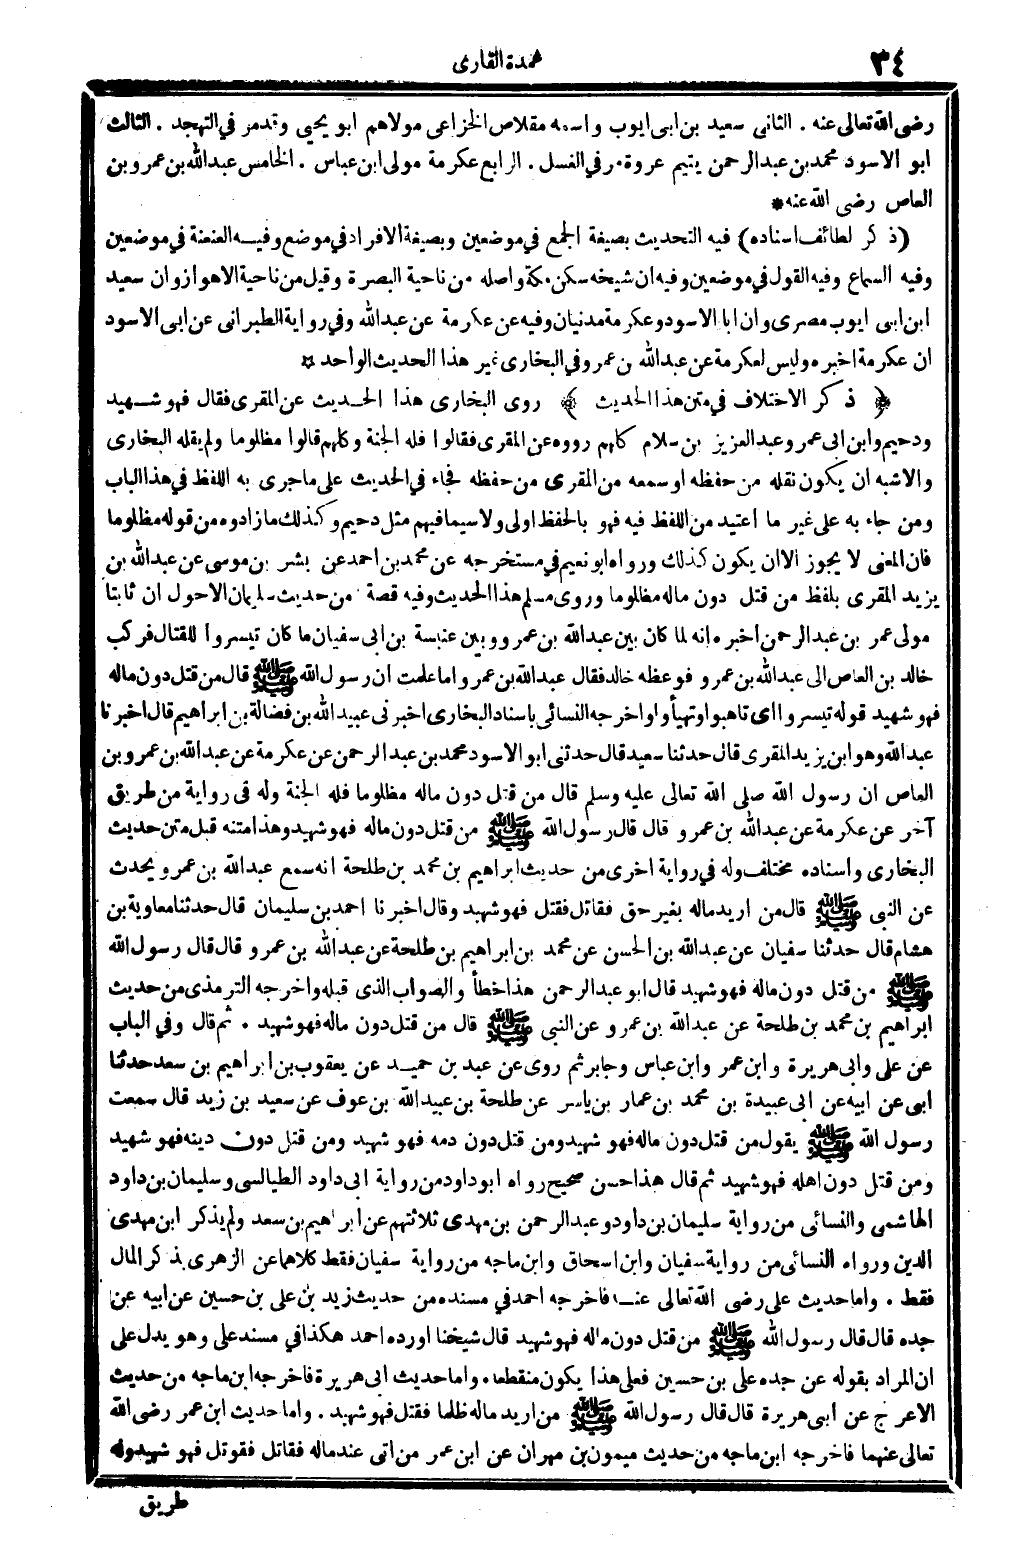 ٣٤
عمدة القارى
رضى الله تعالى عنه . الثانى سعيد بن ابى ايوب واسمه مقلاص الخزاعى مولاهم ابو يحيى وقدمر فى التهجد . الثالث
ابو الاسود محمد بن عبد الرحمن يتيم عروة مر فى الغسل . الرابع عكرمة مولى ابن عباس . الخامس عبدالله بن عمرو بن
العاص رضى الله عنه *
(ذكر لطائف اسناده) فيه التحديث بصيغة الجمع فى موضعين وبصيغة الافراد فى موضع وفيه العنعنة فى موضعين
وفيه السماع وفيه القول فى موضعين وفيه ان شيخه سكن مكة واصله من ناحية البصرة وقيل من ناحية الاهواز وان سعيد
ابن ابى ايوب مصرى وان ابا الاسود وعكرمة مدنيان وفيه عن عكرمة عن عبدالله وفى رواية الطبرانى عن ابى الاسود
ان عكرمة اخبره وليس لعكرمة عن عبدالله بن عمرو فى البخارى غير هذا الحديث الواحد *
﴿ ذكر الاختلاف فى متن هذا الحديث ﴾ روى البخارى هذا الحديث عن المقرى فقال فهو شهيد
ودحيم وابن ابى عمر وعبد العزيز بن سلام كلهم رووه عن المقرى فقالوا فله الجنة وكلهم قالوا مظلوما ولم يقله البخارى
والاشبه ان يكون نقله من حفظه او سمعه من المقرى من حفظه فجاء فى الحديث على ماجرى به اللفظ فى هذا الباب
ومن جاء به على غير ما اعتيد من اللفظ فيه فهو بالحفظ اولى ولا سيما فيهم مثل دحيم وكذلك ما زادوه من قوله مظلوما
فان المعنى لا يجوز الا ان يكون كذلك ورواه ابو نعيم فى مستخرجه عن محمد بن احمد عن بشر بن موسى عن عبدالله بن
يزيد المقرى بلفظ من قتل دون ماله مظلوما وروى مسلم هذا الحديث وفيه قصة من حديث سليمان الاحول ان ثابتا
مولى عمر بن عبد الرحمن اخبره انه لما كان بين عبدالله بن عمرو وبين عنبسة بن ابى سفيان ما كان تيسروا للقتال فركب
خالد بن العاص الى عبدالله بن عمرو فوعظه خالد فقال عبدالله بن عمرو اما علمت ان رسول الله ﷺ قال من قتل دون ماله
فهو شهيد قوله تيسروا اى تاهبوا وتهيأوا واخرجه النسائى باسناد البخارى اخبرنى عبيد الله بن فضالة بن ابراهيم قال اخبرنا
عبدالله وهو ابن يزيد المقرى قال حدثنا سعيد قال حدثنى ابو الاسود محمد بن عبد الرحمن عن عكرمة عن عبدالله بن عمرو بن
العاص ان رسول الله صلى الله تعالى عليه وسلم قال من قتل دون ماله مظلوما فله الجنة وله فى رواية من طريق
آخر عن عكرمة عن عبدالله بن عمرو قال قال رسول الله ﷺ من قتل دون ماله فهو شهيد وهذا متنه قبل متن حديث
البخارى واسناده مختلف وله فى رواية اخرى من حديث ابراهيم بن محمد بن طلحة انه سمع عبدالله بن عمرو يحدث
عن النبى ﷺ قال من اريد ماله بغير حق فقاتل فقتل فهو شهيد وقال اخبرنا احمد بن سليمان قال حدثنا معاوية بن
هشام قال حدثنا سفيان عن عبدالله بن الحسن عن محمد بن ابراهيم بن طلحة عن عبدالله بن عمرو قال قال رسول الله
ﷺ من قتل دون ماله فهو شهيد قال ابو عبد الرحمن هذا خطأ والصواب الذى قبله واخرجه الترمذى من حديث
ابراهيم بن محمد بن طلحة عن عبدالله بن عمرو عن النبى ﷺ قال من قتل دون ماله فهو شهيد . ثم قال وفى الباب
عن على وابى هريرة وابن عمر وابن عباس وجابر ثم روى عن عبد بن حميد عن يعقوب بن ابراهيم بن سعد حدثنا
ابى عن ابيه عن ابى عبيدة بن محمد بن عمار بن ياسر عن طلحة بن عبيدالله بن عوف عن سعيد بن زيد قال سمعت
رسول الله ﷺ يقول من قتل دون ماله فهو شهيد ومن قتل دون دمه فهو شهيد ومن قتل دون دينه فهو شهيد
ومن قتل دون اهله فهو شهيد ثم قال هذا حسن صحيح رواه ابو داود من رواية ابى داود الطيالسى وسليمان بن داود
الهاشمى والنسائى من رواية سليمان بن داود وعبد الرحمن بن مهدى ثلاثتهم عن ابراهيم بن سعد ولم يذكر ابن مهدى
الدين ورواه النسائى من رواية سفيان وابن اسحاق وابن ماجه من رواية سفيان فقط كلاهما عن الزهرى بذكر المال
فقط . واما حديث على رضى الله تعالى عنه فاخرجه احمد فى مسنده من حديث زيد بن على بن حسين عن ابيه عن
جده قال قال رسول الله ﷺ من قتل دون ماله فهو شهيد قال شيخنا اورده احمد هكذا فى مسند على وهو يدل على
ان المراد بقوله عن جده على بن حسين فعلى هذا يكون منقطعا . واما حديث ابى هريرة فاخرجه ابن ماجه من حديث
الاعرج عن ابى هريرة قال قال رسول الله ﷺ من اريد ماله ظلما فقتل فهو شهيد . واما حديث ابن عمر رضى الله
تعالى عنهما فاخرجه ابن ماجه من حديث ميمون بن مهران عن ابن عمر من اتى عند ماله فقاتل فقوتل فهو شهيد وله
طريق